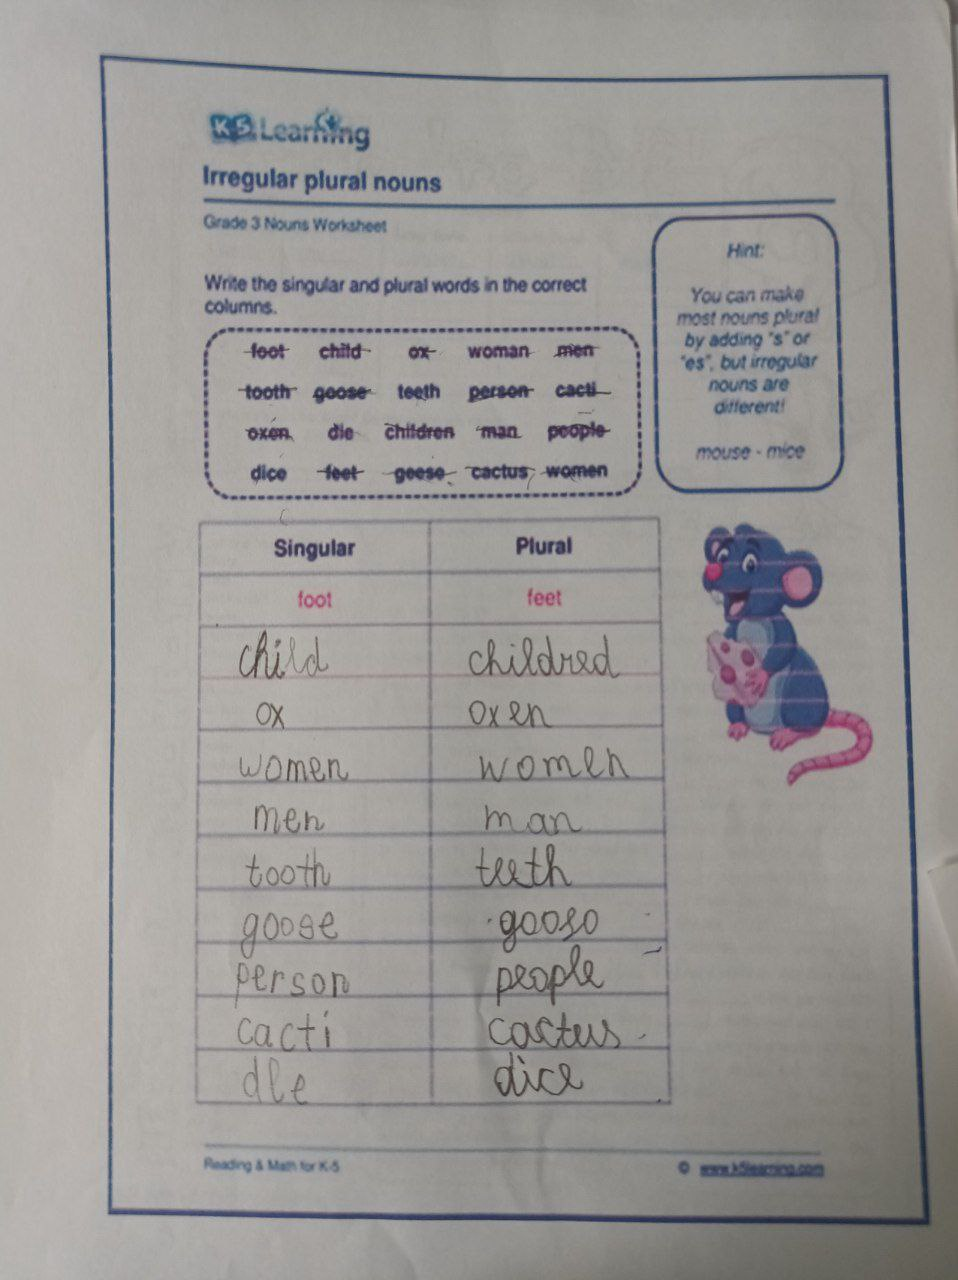 K5 Learning
Irregular plural nouns
Grade 3 Nouns Worksheet
Write the singular and plural words in the correct
columns.
Hint:
You can make
most nouns plural
by adding "s" or
"es", but irregular
nouns are
different!
mouse - mice
foot child ox woman men
tooth goose teeth person cacti
oxen die children man people
dice feet geese cactus women
Singular Plural
foot feet
child childred
ox oxen
women women
men man
tooth teeth
goose gooso
person people
cacti cactus
dle dice
Reading & Math for K-5 © www.k5learning.com